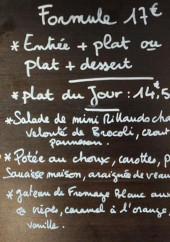 Formule 17€
* Entrée + plat ou
plat + dessert
* plat du Jour : 14,5
* Salade de mini Rillauds cha
velouté de Brocoli, crout
parmesan.
* Potée au choux, carottes, p
Saucisse maison, araignée de veau
* gateau de Fromage Blanc aux
crêpes, caramel à l'orange,
vanille.